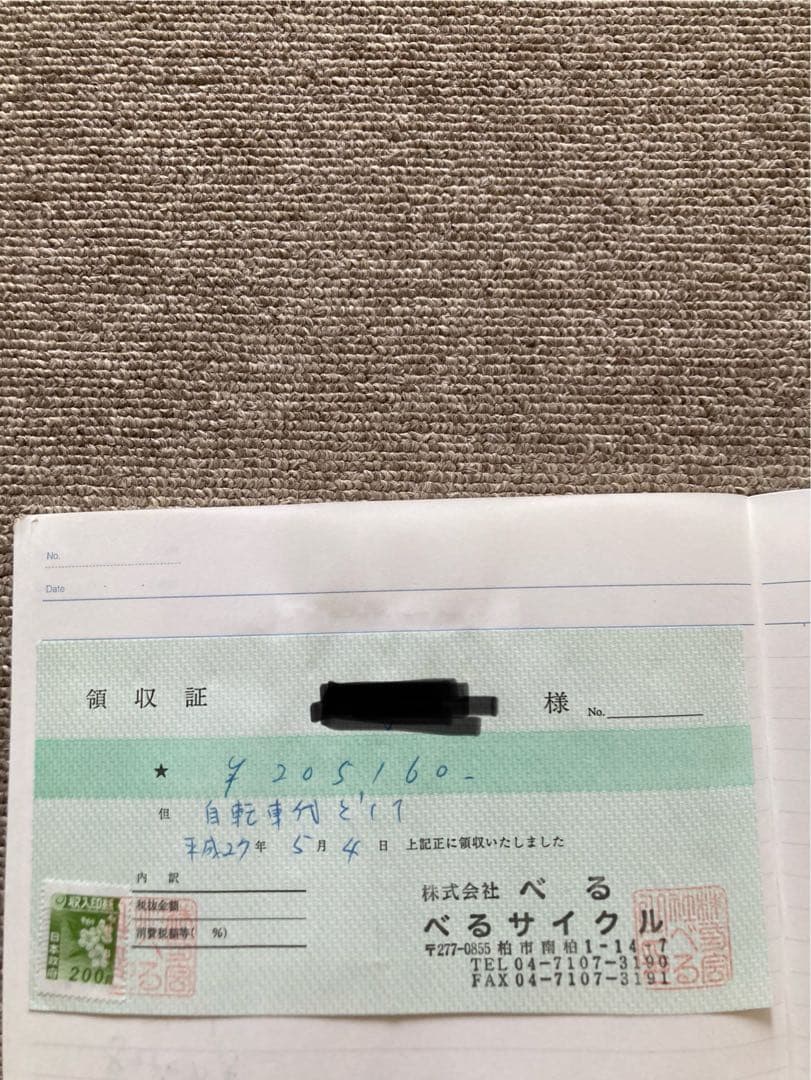 No.
Date
領収証 様 No.
★ ¥205160-
但 自転車代として
平成27年 5月 4日 上記正に領収いたしました
内訳
税抜金額
消費税額等( %)
収入印紙
日本政府
200円
株式会社 べる
べるサイクル
〒277-0855 柏市南柏1-14-7
TEL 04-7107-3190
FAX 04-7107-3191